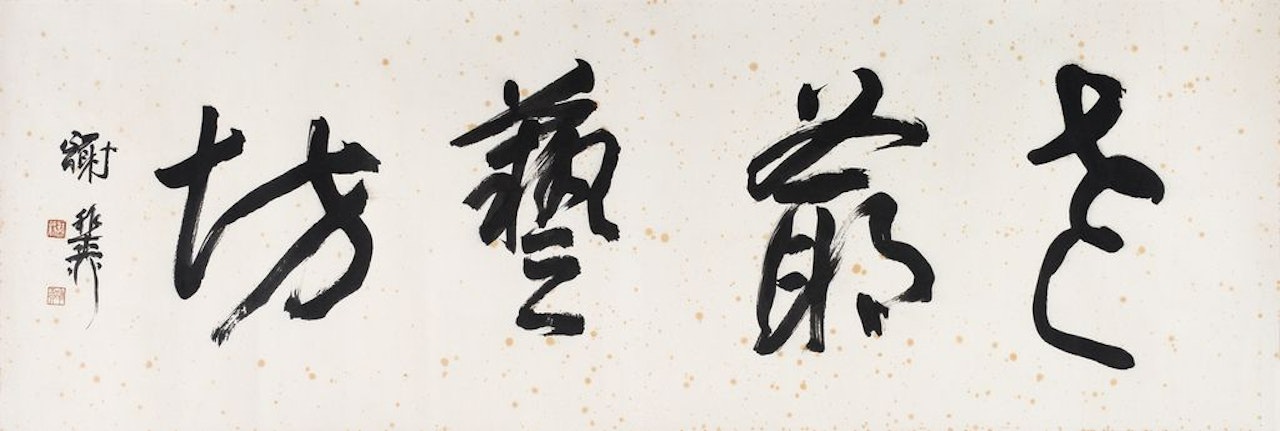 老爺藝坊
謝稚柳